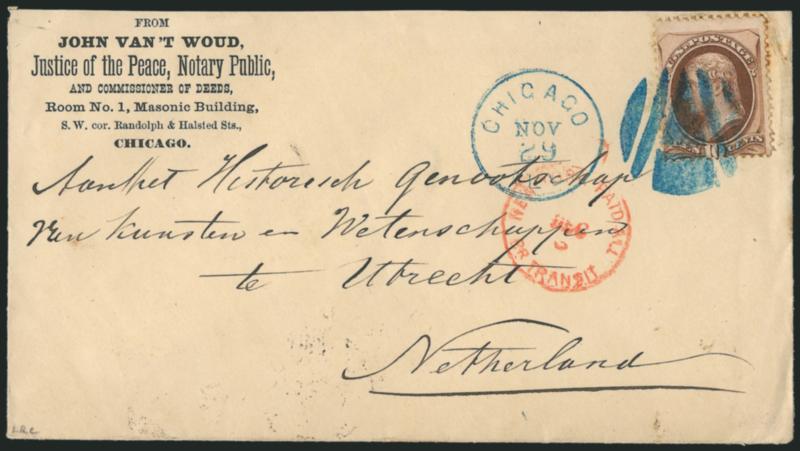 FROM
JOHN VAN'T WOUD,
Justice of the Peace, Notary Public,
AND COMMISSIONER OF DEEDS,
Room No. 1, Masonic Building,
S. W. cor. Randolph & Halsted Sts.,
CHICAGO.
CHICAGO
NOV
29
U.S. POSTAGE
CENTS
Aan het Historisch Genootschap
van Kunsten en Wetenschappen
te Utrecht
Netherland
NEW PAID ALL
DEC
2
BR. TRANSIT